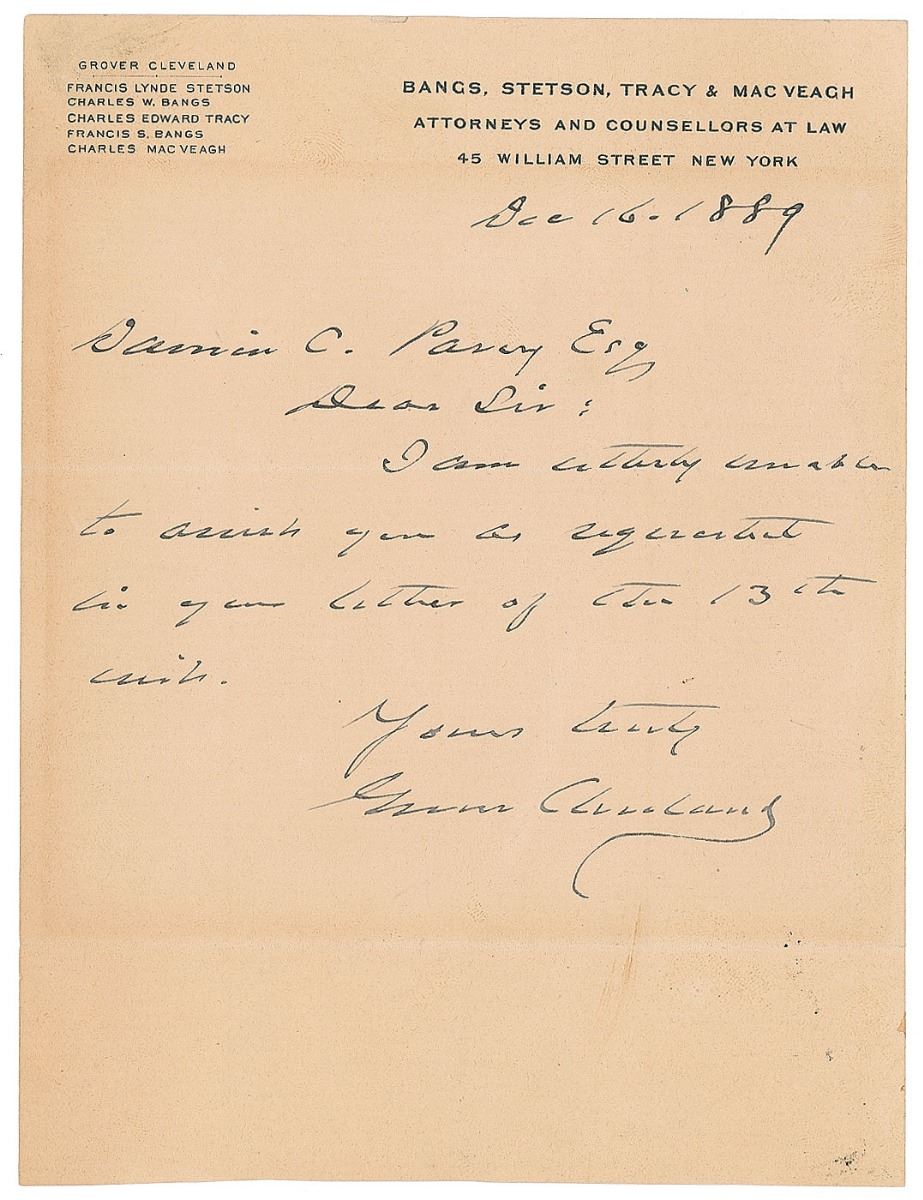 GROVER CLEVELAND
FRANCIS LYNDE STETSON
CHARLES W. BANGS
CHARLES EDWARD TRACY
FRANCIS S. BANGS
CHARLES MAC VEAGH
BANGS, STETSON, TRACY & MAC VEAGH
ATTORNEYS AND COUNSELLORS AT LAW
45 WILLIAM STREET NEW YORK
Dec 16. 1889
C. Esq
Dear Sir:
I am utterly unable
to assist you as requested
in your letter of the 13th
inst.
Yours truly
Grover Cleveland